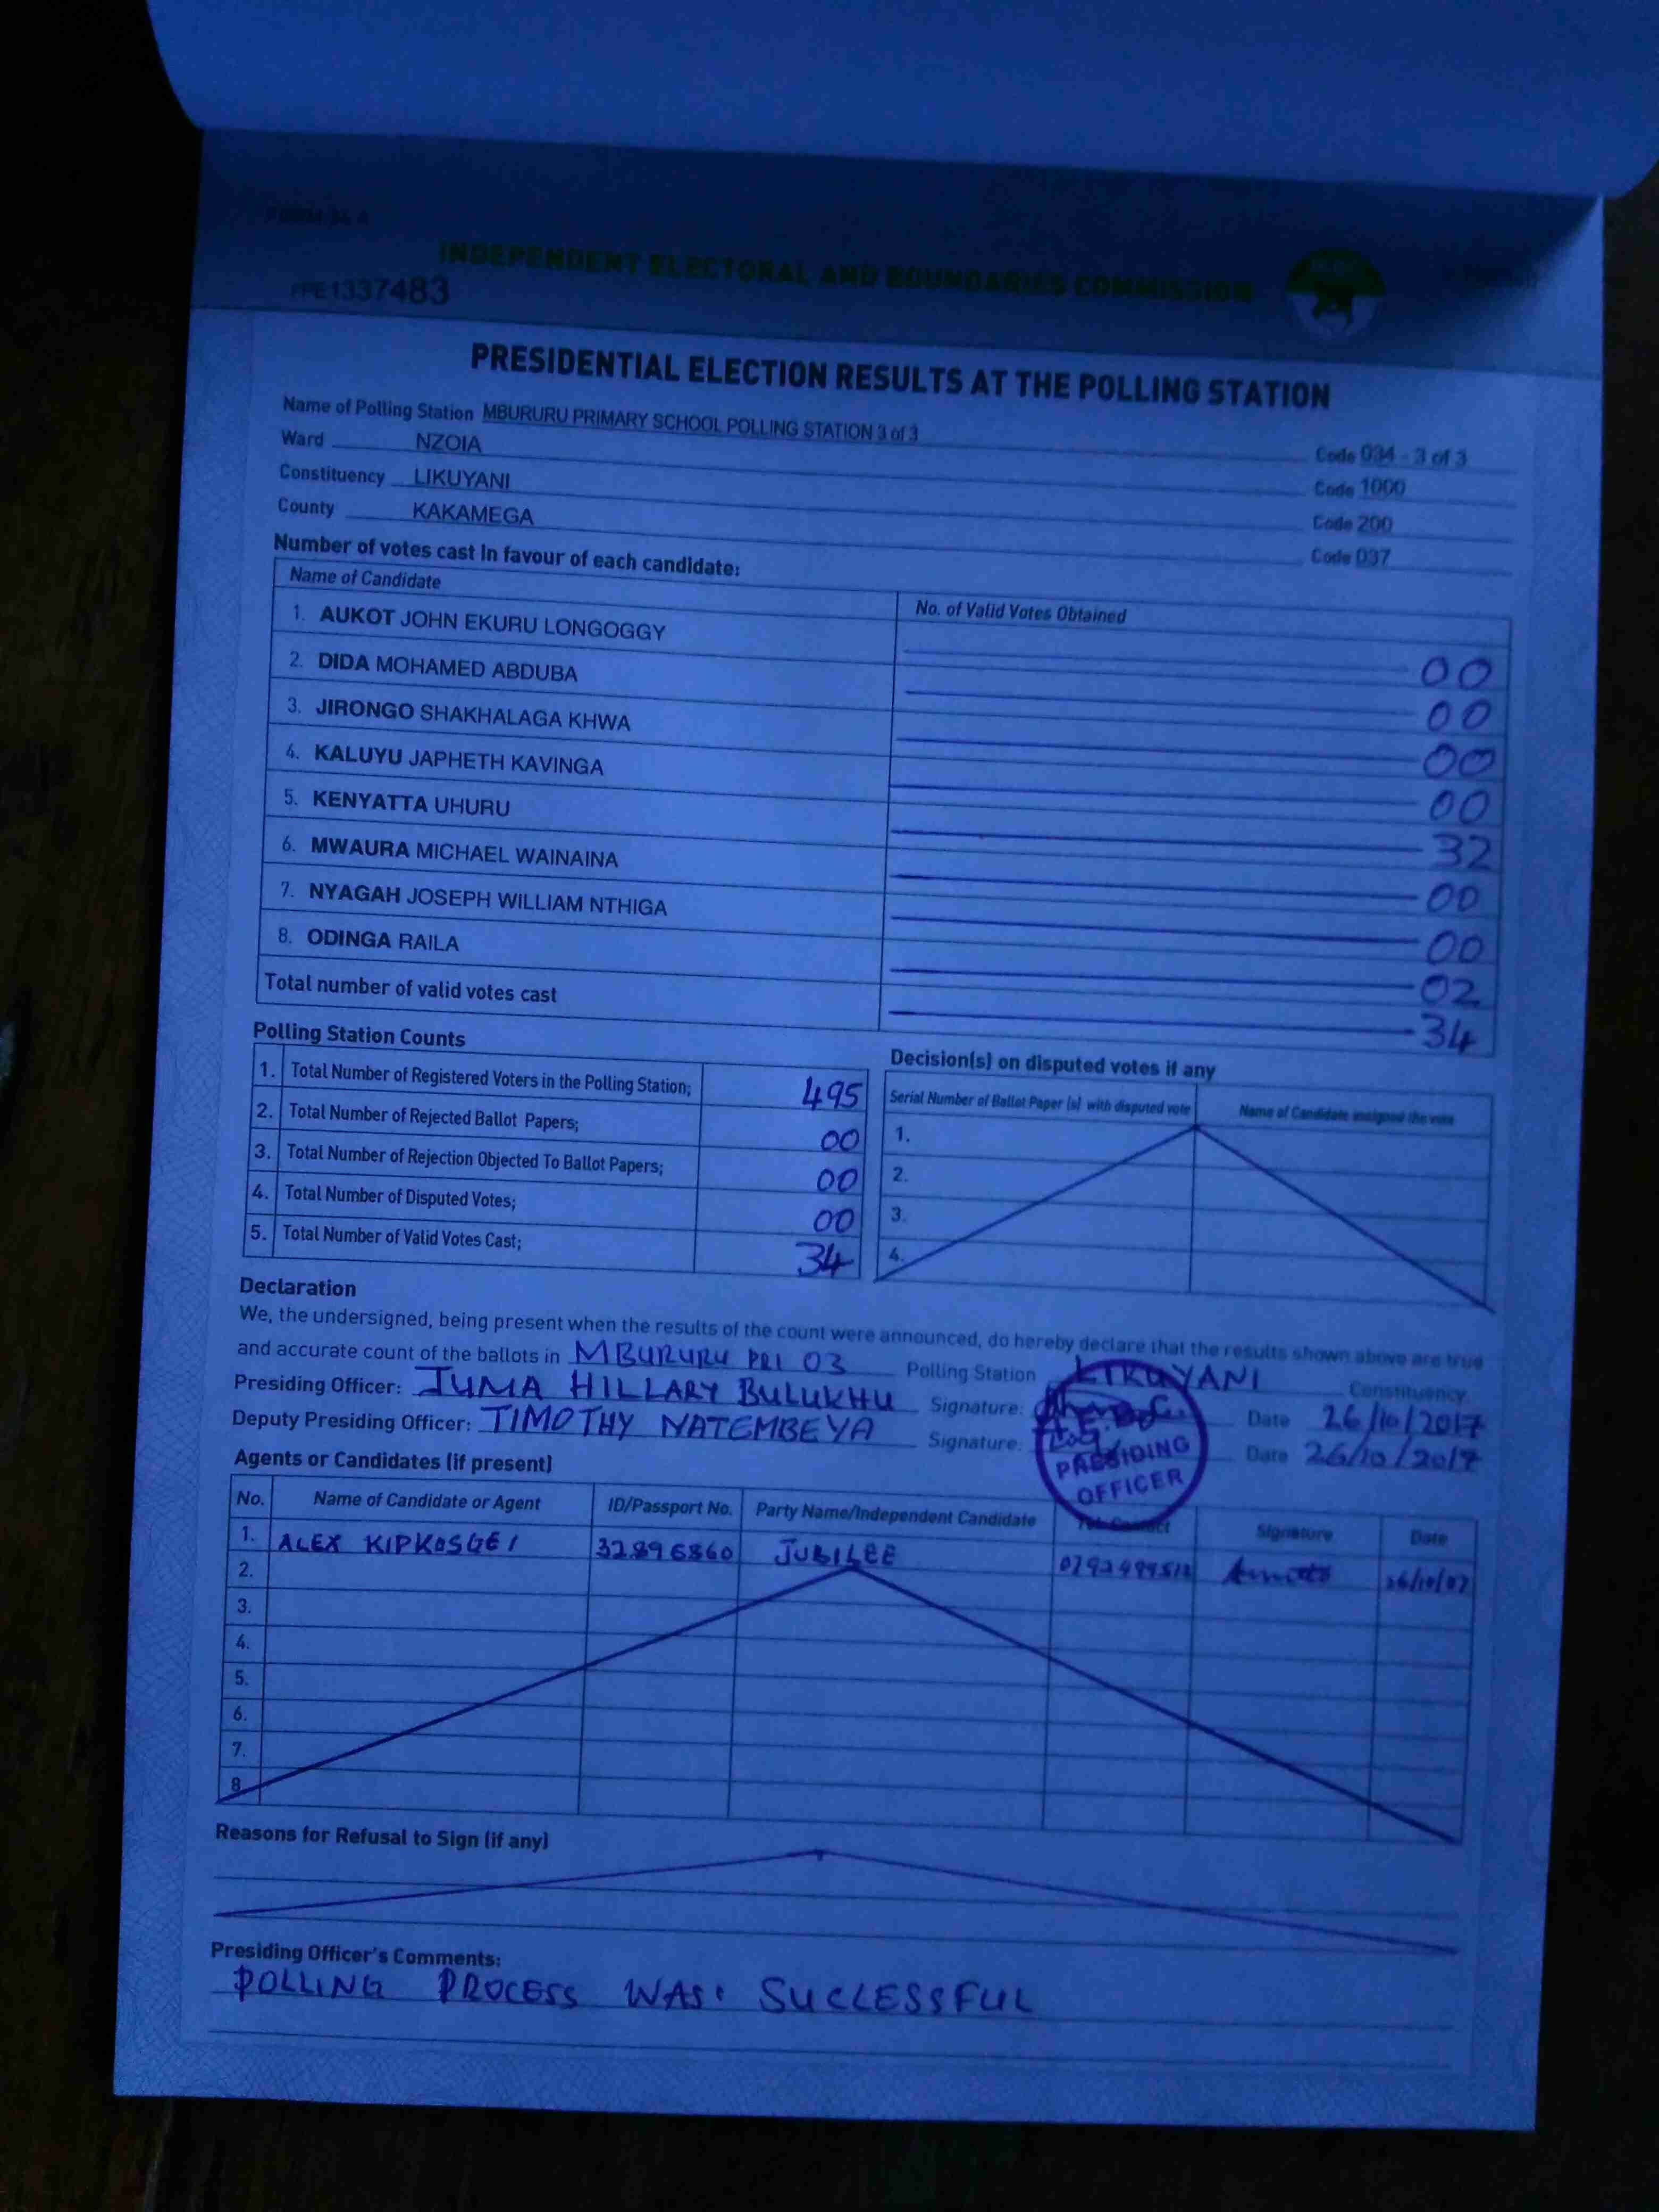 FORM 34 A
INDEPENDENT ELECTORAL AND BOUNDARIES COMMISSION
PE1337483
PRESIDENTIAL ELECTION RESULTS AT THE POLLING STATION
Name of Polling Station MBURURU PRIMARY SCHOOL POLLING STATION 3 of 3 Code 034 - 3 of 3
Ward NZOIA Code 1000
Constituency LIKUYANI Code 200
County KAKAMEGA Code 037
Number of votes cast in favour of each candidate:
Name of Candidate No. of Valid Votes Obtained
1. AUKOT JOHN EKURU LONGOGGY 00
2. DIDA MOHAMED ABDUBA 00
3. JIRONGO SHAKHALAGA KHWA 00
4. KALUYU JAPHETH KAVINGA 00
5. KENYATTA UHURU 32
6. MWAURA MICHAEL WAINAINA 00
7. NYAGAH JOSEPH WILLIAM NTHIGA 00
8. ODINGA RAILA 02
Total number of valid votes cast 34
Polling Station Counts
1. Total Number of Registered Voters in the Polling Station; 495
2. Total Number of Rejected Ballot Papers; 00
3. Total Number of Rejection Objected To Ballot Papers; 00
4. Total Number of Disputed Votes; 00
5. Total Number of Valid Votes Cast; 34
Decision(s) on disputed votes if any
Serial Number of Ballot Paper (s) with disputed vote Name of Candidate assigned the vote
1.
2.
3.
4.
Declaration
We, the undersigned, being present when the results of the count were announced, do hereby declare that the results shown above are true
and accurate count of the ballots in MBURURU PRI 03 Polling Station LIKUYANI Constituency
Presiding Officer: JUMA HILLARY BULUKHU Signature: Date 26/10/2017
Deputy Presiding Officer: TIMOTHY NATEMBEYA Signature: Date 26/10/2017
PRESIDING
OFFICER
Agents or Candidates (if present)
No. Name of Candidate or Agent ID/Passport No. Party Name/Independent Candidate Tel. Contact Signature Date
1. ALEX KIPKOSGEI 32896860 JUBILEE
2.
3.
4.
5.
6.
7.
8.
Reasons for Refusal to Sign (if any)
Presiding Officer's Comments:
POLLING PROCESS WAS SUCLESSFUL